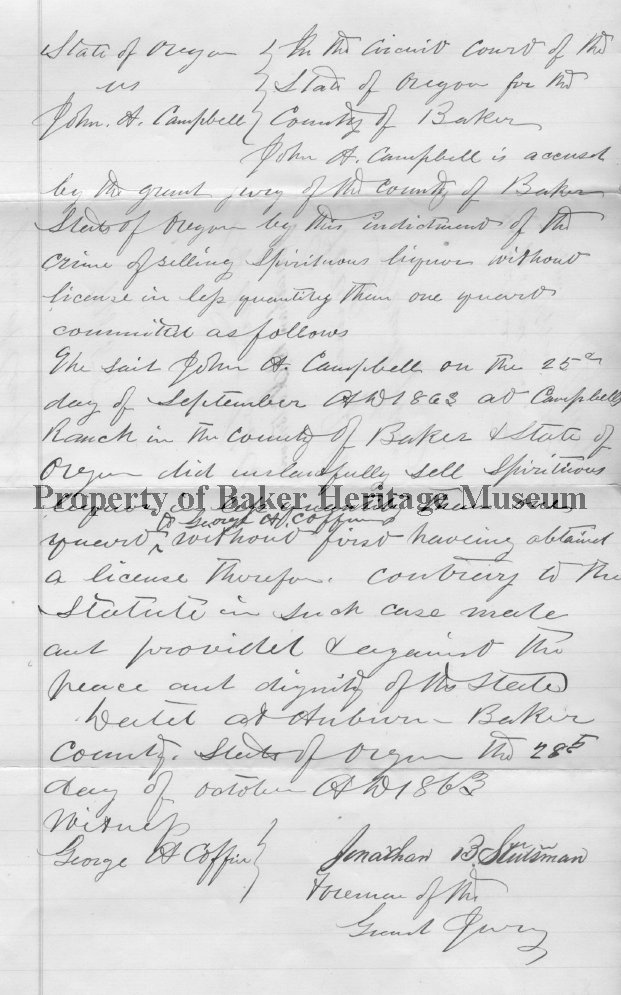 State of Oregon } In the Circuit Court of the
vs } State of Oregon for the
John. A. Campbell } County of Baker
John A. Campbell is accused
by the grand jury of the county of Baker
State of Oregon by this indictment of the
crime of selling spirituous liquor without
license in less quantity than one quart
committed as follows
The said John A. Campbell on the 25th
day of September AD 1863 at Campbells
Ranch in the county of Baker & State of
Oregon did unlawfully sell spirituous
liquor in less quantity than one
Property of Baker Heritage Museum
to George A. Coffin
quart without first having obtained
a license therefor. contrary to the
statute in such case made
and provided & against the
peace and dignity of the State
Dated at Auburn - Baker
county. State of Oregon the 28th
day of october AD 1863
Witness
George A Coffin } Jonathan B. Stutsman
Foreman of the
Grand Jury